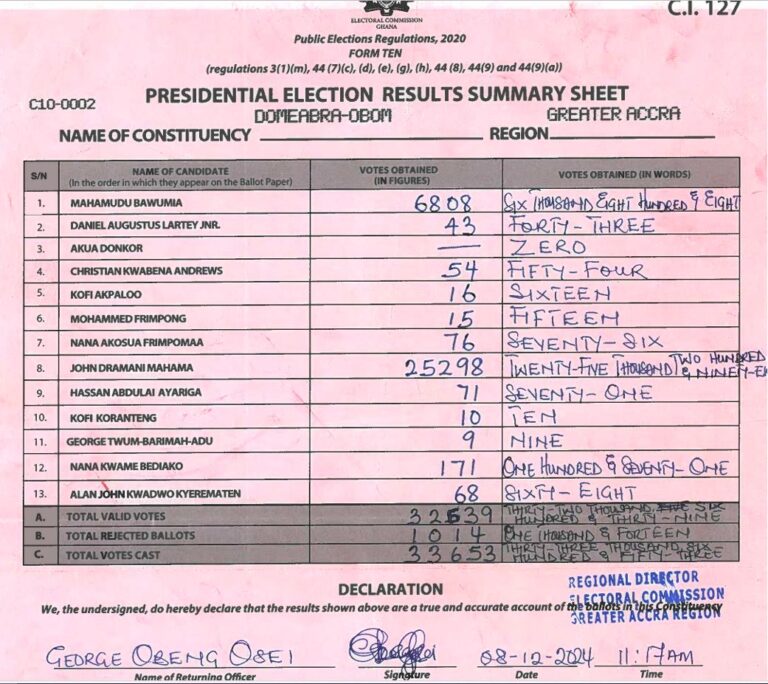 C.I. 127
ELECTORAL COMMISSION
GHANA
Public Elections Regulations, 2020
FORM TEN
(regulations 3(1)(m), 44 (7)(c), (d), (e), (g), (h), 44 (8), 44(9) and 44(9)(a))
C10-0002
PRESIDENTIAL ELECTION RESULTS SUMMARY SHEET
DOMEABRA-OBOM GREATER ACCRA
NAME OF CONSTITUENCY REGION
S/N NAME OF CANDIDATE (In the order in which they appear on the Ballot Paper) VOTES OBTAINED (IN FIGURES) VOTES OBTAINED (IN WORDS)
1. MAHAMUDU BAWUMIA 6808 SIX THOUSAND EIGHT HUNDRED & EIGHT
2. DANIEL AUGUSTUS LARTEY JNR. 43 FORTY-THREE
3. AKUA DONKOR — ZERO
4. CHRISTIAN KWABENA ANDREWS 54 FIFTY-FOUR
5. KOFI AKPALOO 16 SIXTEEN
6. MOHAMMED FRIMPONG 15 FIFTEEN
7. NANA AKOSUA FRIMPOMAA 76 SEVENTY-SIX
8. JOHN DRAMANI MAHAMA 25298 TWENTY-FIVE THOUSAND TWO HUNDRED & NINETY-EI
9. HASSAN ABDULAI AYARIGA 71 SEVENTY-ONE
10. KOFI KORANTENG 10 TEN
11. GEORGE TWUM-BARIMAH-ADU 9 NINE
12. NANA KWAME BEDIAKO 171 ONE HUNDRED & SEVENTY-ONE
13. ALAN JOHN KWADWO KYEREMATEN 68 SIXTY-EIGHT
A. TOTAL VALID VOTES 32639 THIRTY-TWO THOUSAND, FIVE SIX HUNDRED & THIRTY-NINE
B. TOTAL REJECTED BALLOTS 1014 ONE THOUSAND & FORTEEN
C. TOTAL VOTES CAST 33653 THIRTY-THREE THOUSAND SIX HUNDRED & FIFTY-THREE
DECLARATION
We, the undersigned, do hereby declare that the results shown above are a true and accurate account of the ballots in this Constituency
REGIONAL DIRECTOR
ELECTORAL COMMISSION
GREATER ACCRA REGION
GEORGE OBENG OSEI 08-12-2024 11:17AM
Name of Returning Officer Signature Date Time